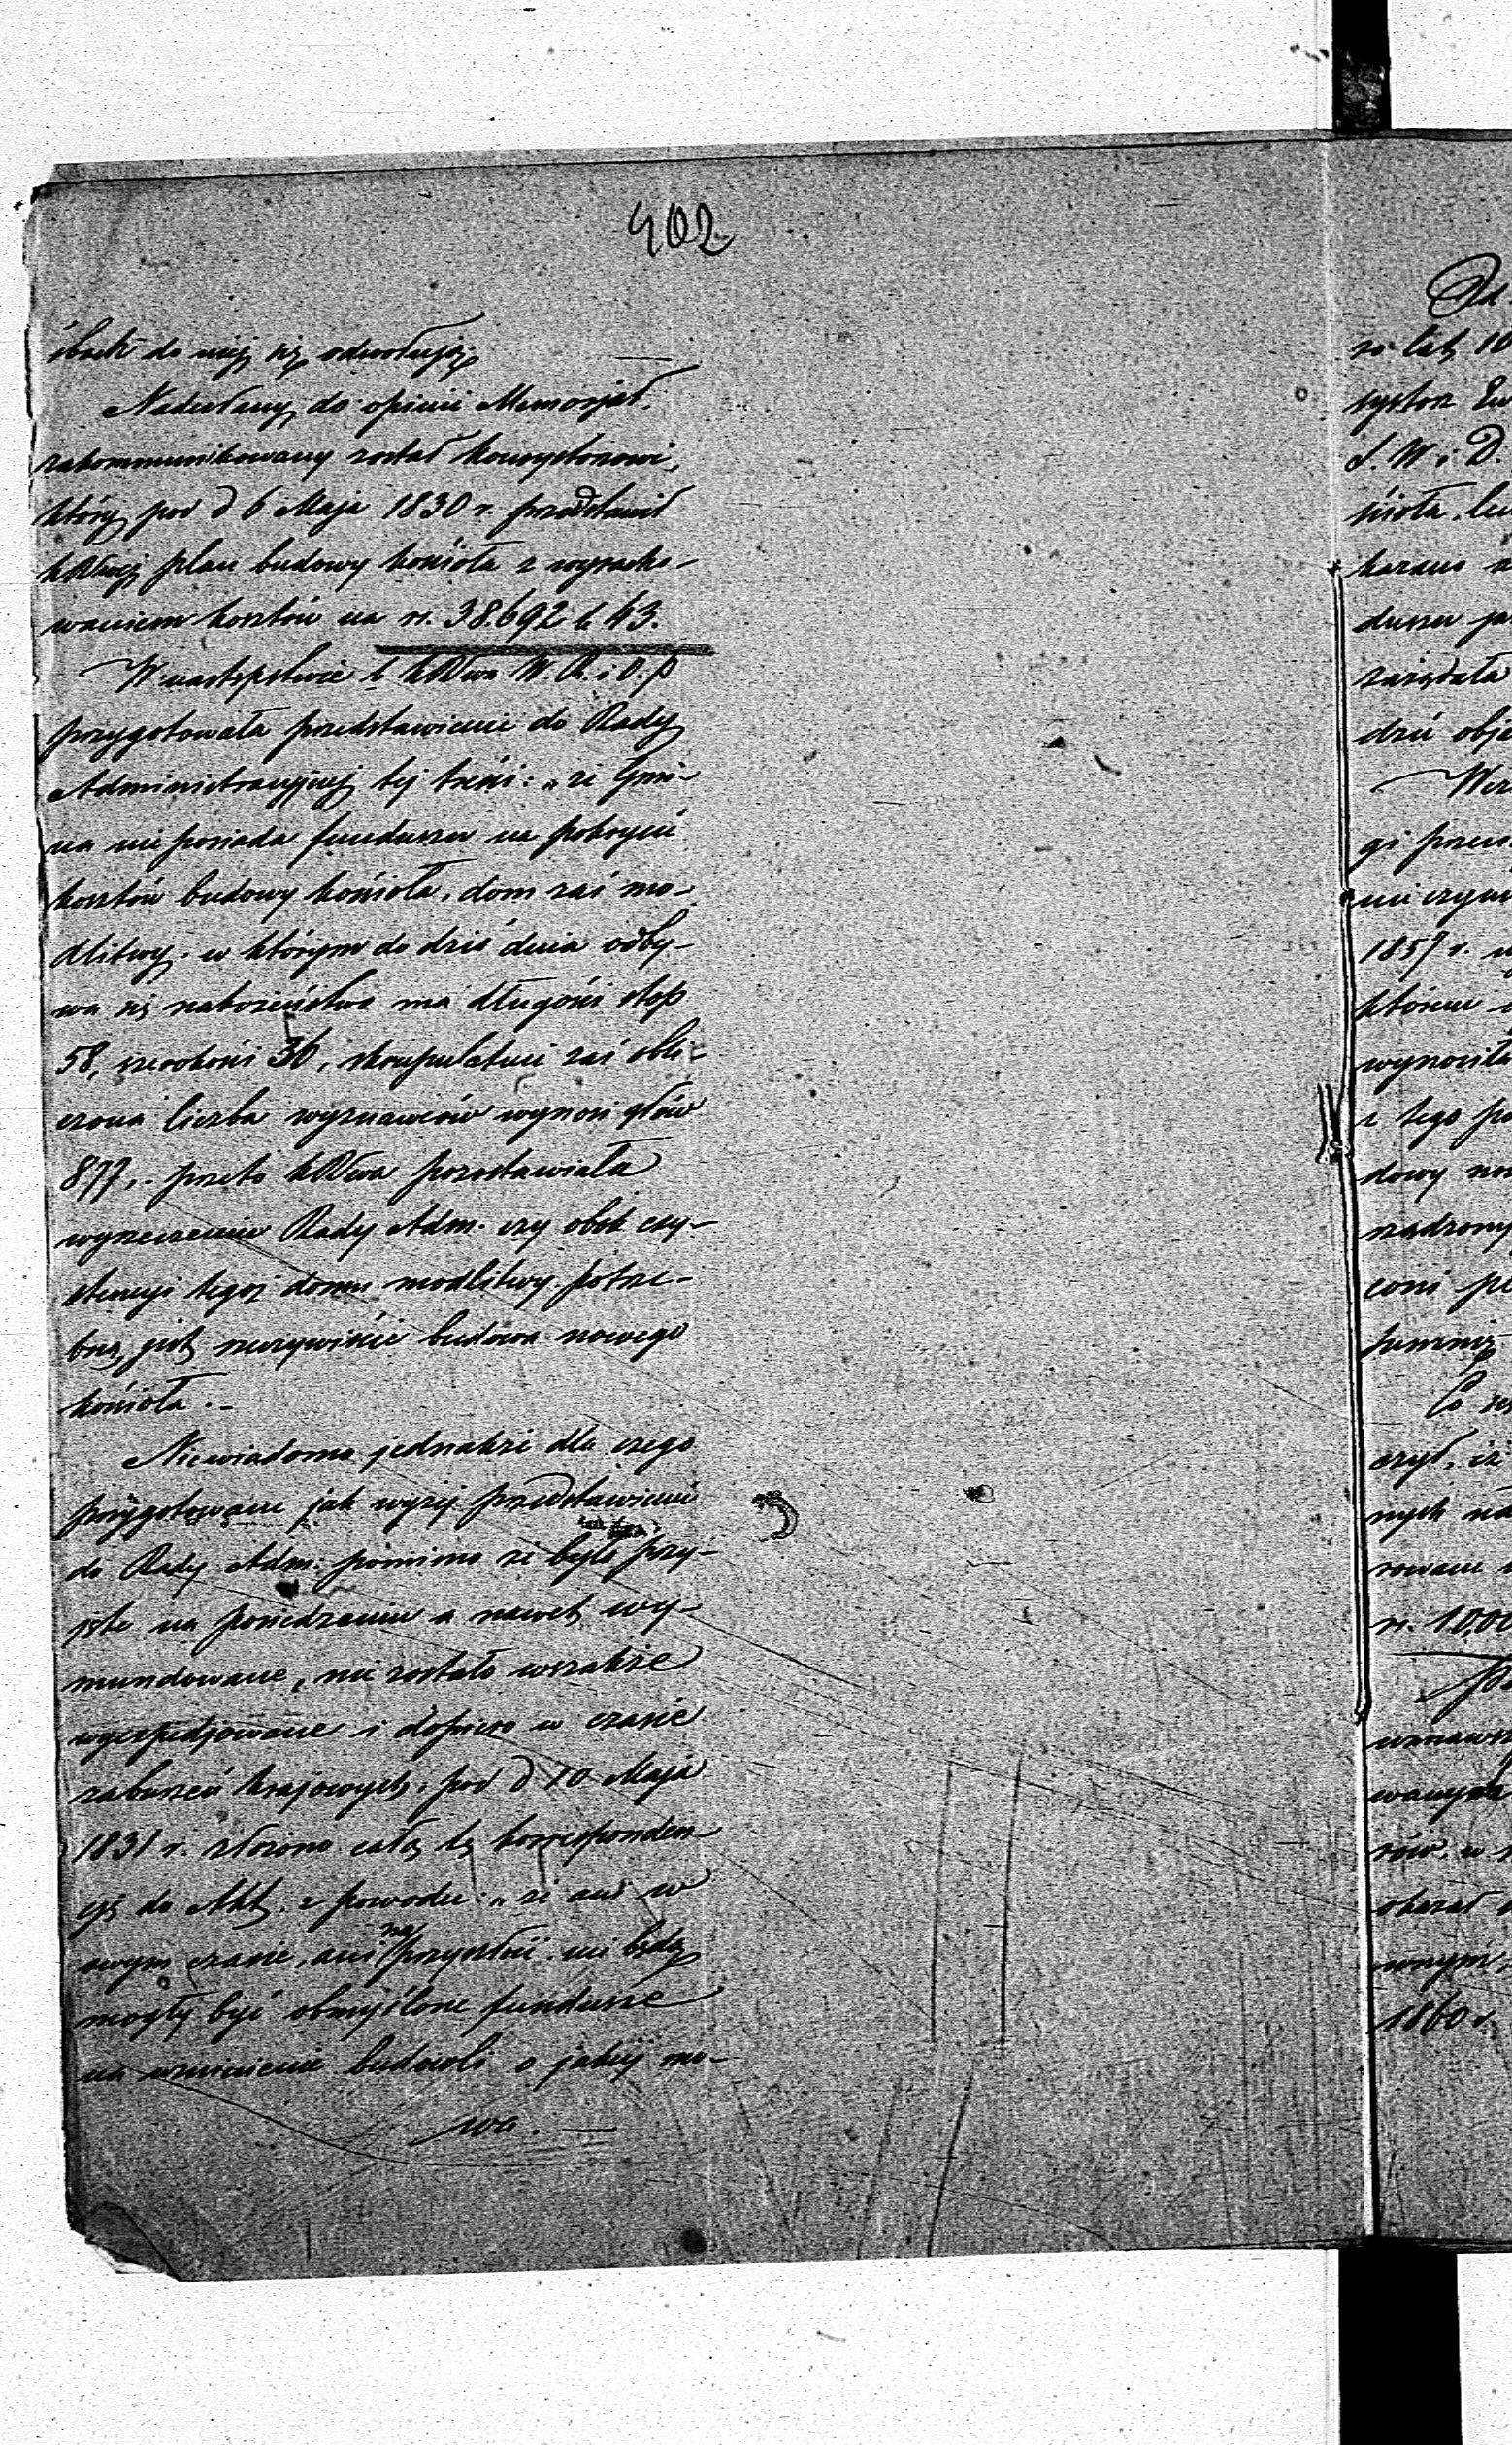 402
do niej się odwołując
Nadesłany do opinii Memorjał
zakommunikowany został Konsystorzowi,
który pod d 6 Maja 1830 r. przedstawił
plan budowy kościoła z wyracho-
waniem kosztów na rs. 38.692 k 43.
W następstwie W. R. i O. P
przygotowała przedstawienie do Rady
Administracyjnej tej treści: „że Gmi-
na nie posiada funduszu na pokrycie
kosztów budowy kościoła, dom zaś mo-
dlitwy, w którym do dziś dnia odby-
wa się nabożeństwo ma długości stop
58, szerokości 36, skrupulatnie zaś obli-
czona liczba wyznawców wynosi głów
877, przeto pozostawiała
wyrzeczeniu Rady Adm. czy obok exy-
stencyi tegoż domu modlitwy, potrze-
bną jest rzeczywiście budowa nowego
kościoła. –
Niewiadomo jednakże dla czego
przygotowane jak wyżej przedstawienie
do Rady Adm. pomimo że było przy-
jęte na posiedzeniu a nawet wy-
mundowane, nie zostało wszakże
wyexpedjowane i dopiero w czasie
zaburzeń krajowych, pod d 10 Maja
1831 r. złożono całą tę korresponden-
cyę do Akt, z powodu: „że ani w
owym czasie, ani na przyszłość nie będą
mogły być obmyślone fundusze
na wzniesienie budowli o jakiej mo-
wa. –
Od
10
S. W. i D.
funduszu
zażądała
1857 r.
wynosiła
z tego
dowy
Co
nych
rs. 10,00
okazał
1860 r.